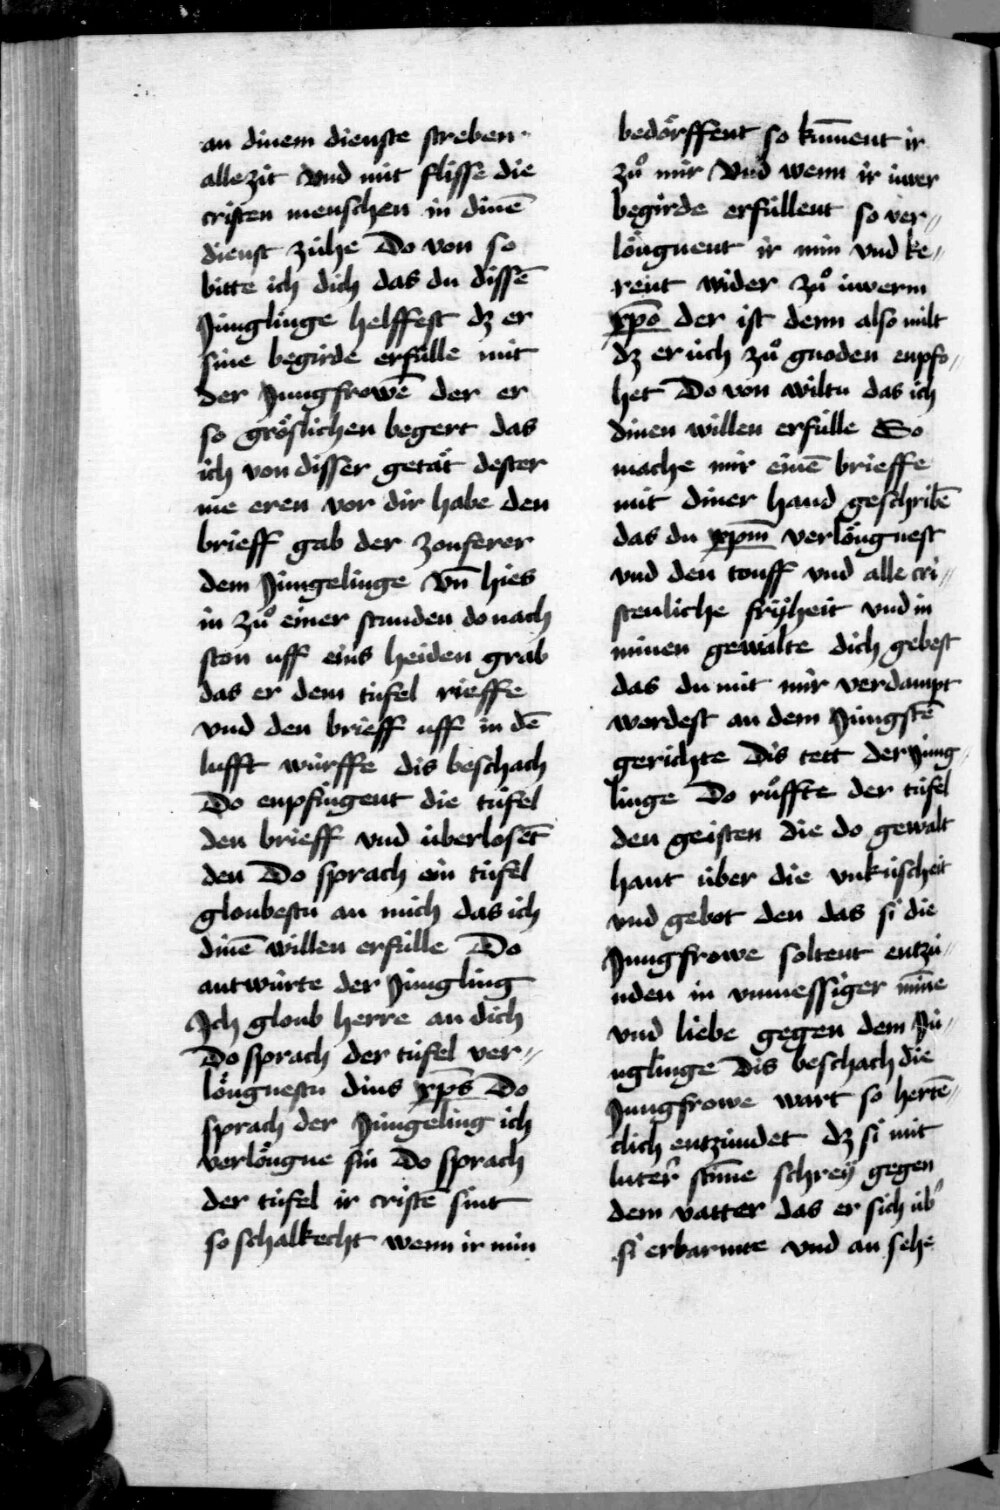 an dinem dienste streben
alle zit vnd mit flisse die
cristen menschen in dinē
dienst zühe Do von so
bitte ich dich das du dissē
Jünglinge helffest dz er
sine begirde erfülle mit
der Jungfrowē der er
so gröslichen begert das
ich von disser getät dester
me eren vor dir habe den
brieff gab der zonferer
dem Jüngelinge Vn̄ hies
in zů einer stunden do nach
ston uff eins heiden grab
das er dem tüfel rieffe
vnd den brieff uff in dē
lufft würffe dis beschach
Do enpfingent die tüfel
den brieff vnd überlosēt
den Do sprach ein tüfel
gloubestu an mich das ich
dinē willen erfülle Do
antwürte der Jüngling
Ich gloub herre an dich
Do sprach der tüfel ver„
löugnestu dins xp̄s Do
sprach der Jüngeling ich
verlöugne sin Do sprach
der tüfel ir cristē sint
so schalkecht wenn ir min
bedörffent so kum̄ent ir
zů mir Vnd wenn ir üwer
begirde erfüllent so ver„
löugnent ir min vnd ke„
rent wider zů üwerm
xp̄o der ist denn also milt
dz er üch zů gnoden enpfo„
het Do von wiltu das ich
dinen willen erfülle So
mache mir einē brieffe
mit diner hand geschribē
das du xp̄m verlöugnest
vnd den touff vnd alle cri„
stenliche frÿheit vnd in
minen gewalte dich gebest
das du mit mir verdampt
werdest an dem Jüngstē
gerichte Dis tett der Jüng„
linge Do růffte der tüfel
den geisten die do gewalt
hant über die vnküscheit
vnd gebot den das si die
Jungfrowe soltent entzü„
nden in vnmessiger min̄e
vnd liebe gegen dem Jü„
nglinge Dis beschach die
Jungfrowe wart so hertē„
clich entzündet dz si mit
luter stim̄e schreÿ gegen
dem vatter das er sich üb͛
si erbarmte vnd an sehe